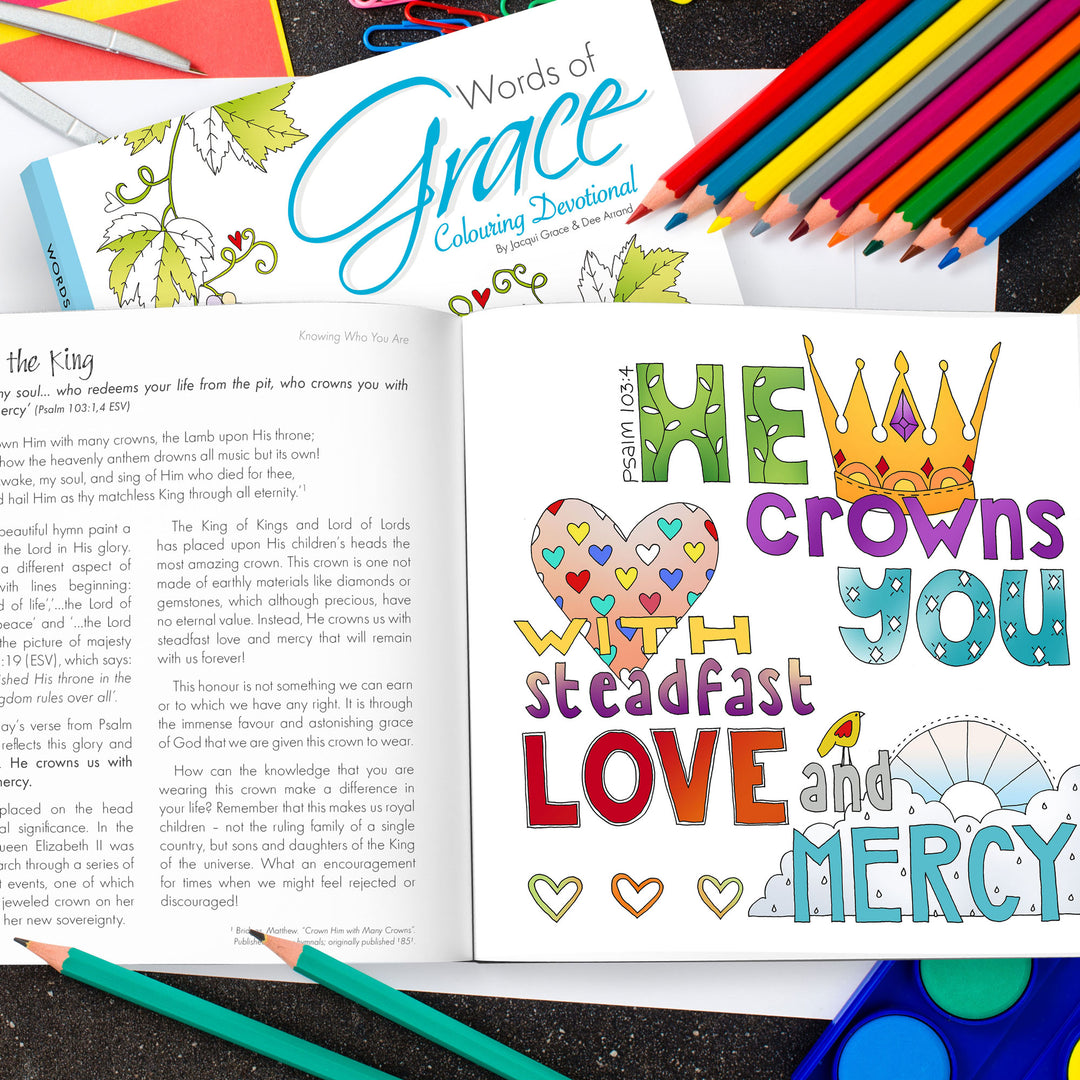 Words of
Grace
Colouring Devotional
By Jacqui Grace & Dee Arrand
WORDS
Knowing Who You Are
the King
my soul... who redeems your life from the pit, who crowns you with
mercy' (Psalm 103:1,4 ESV)
Him with many crowns, the Lamb upon His throne;
how the heavenly anthem drowns all music but its own!
my soul, and sing of Him who died for thee,
hail Him as thy matchless King through all eternity.'¹
beautiful hymn paint a
the Lord in His glory.
a different aspect of
with lines beginning:
of life','...the Lord of
peace' and '...the Lord
the picture of majesty
:19 (ESV), which says:
His throne in the
rules over all'.
verse from Psalm
reflects this glory and
He crowns us with
mercy.
placed on the head
significance. In the
Queen Elizabeth II was
through a series of
events, one of which
jeweled crown on her
her new sovereignty.
The King of Kings and Lord of Lords
has placed upon His children's heads the
most amazing crown. This crown is one not
made of earthly materials like diamonds or
gemstones, which although precious, have
no eternal value. Instead, He crowns us with
steadfast love and mercy that will remain
with us forever!
This honour is not something we can earn
or to which we have any right. It is through
the immense favour and astonishing grace
of God that we are given this crown to wear.
How can the knowledge that you are
wearing this crown make a difference in
your life? Remember that this makes us royal
children – not the ruling family of a single
country, but sons and daughters of the King
of the universe. What an encouragement
for times when we might feel rejected or
discouraged!
¹ Matthew. "Crown Him with Many Crowns".
hymnals; originally published 1851.
Psalm 103:4
HE
crowns
YOU
WITH
steadfast
LOVE and
MERCY